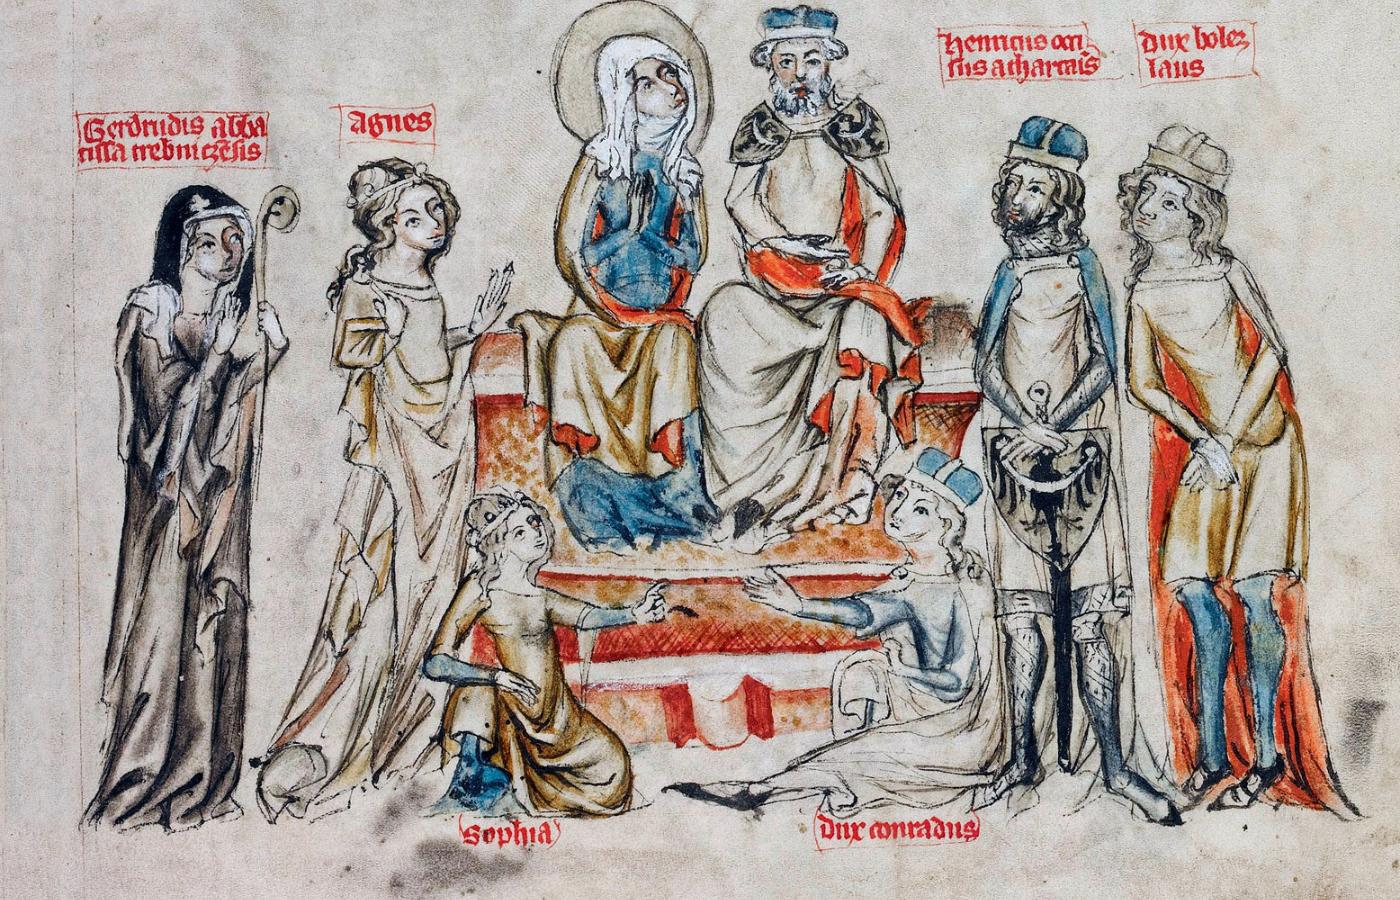 Gerdrudis abba
tissa trebniczēsis
Agnes
henricus occi
sus a thartaris
dux bolez
laus
Sophia
dux conradus